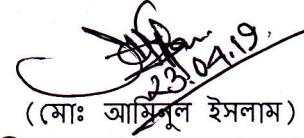 23.04.19.
(মোঃ আমিনুল ইসলাম)